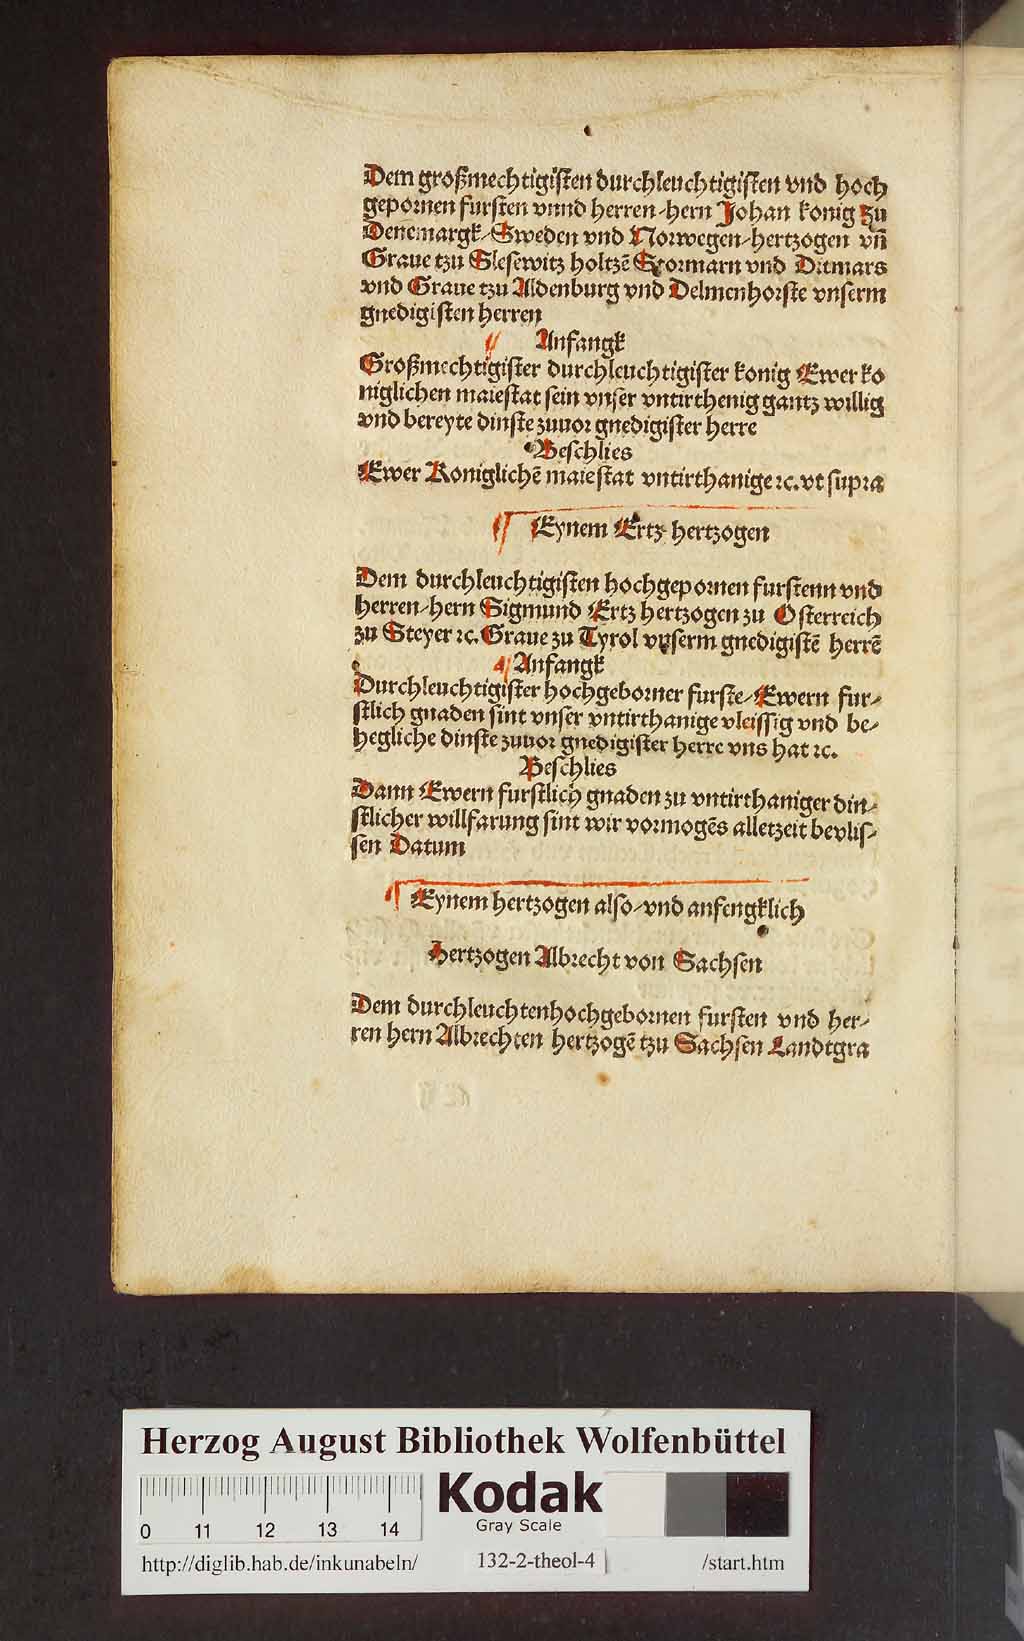 Dem großmechtigisten durchleuchtigisten vnd hoch
gepornen fursten vnnd herren/hern Johan konig zu
Denemargk/Sweden vnd Norwegen/hertzogen vn̄
Graue tzu Slesewitz holtzē Stormarn vnd Ditmars
vnd Graue tzu Aldenburg vnd Delmenhorste vnserm
gnedigisten herren
Anfangk
Großmechtigister durchleuchtigister konig Ewer ko
niglichen maiestat sein vnser vntirthenig gantz willig
vnd bereyte dinste zuuor gnedigister herre
Beschlies
Ewer Koniglichē maiestat vntirthanige ꝛc. vt supra
¶ Eynem Ertz hertzogen
Dem durchleuchtigisten hochgepornen furstenn vnd
herren/hern Sigmund Ertz hertzogen zu Osterreich
zu Steyer ꝛc. Graue zu Tyrol vnserm gnedigistē herrē
Anfangk
Durchleuchtigister hochgeborner furste/Ewern fur/
stlich gnaden sint vnser vntirthanige vleissig vnd be/
hegliche dinste zuuor gnedigister herre vns hat ꝛc.
Beschlies
Dann Ewern furstlich gnaden zu vntirthaniger din/
stlicher willfarung sint wir vormogēs alletzeit bevlis/
sen Datum
¶ Eynem hertzogen also/vnd anfengklich
Hertzogen Albrecht von Sachsen
Dem durchleuchtenhochgebornen fursten vnd her/
ren hern Albrechten hertzogē tzu Sachsen Landtgra
Herzog August Bibliothek Wolfenbüttel
0 11 12 13 14
Kodak
Gray Scale
http://diglib.hab.de/inkunabeln/ 132-2-theol-4 /start.htm